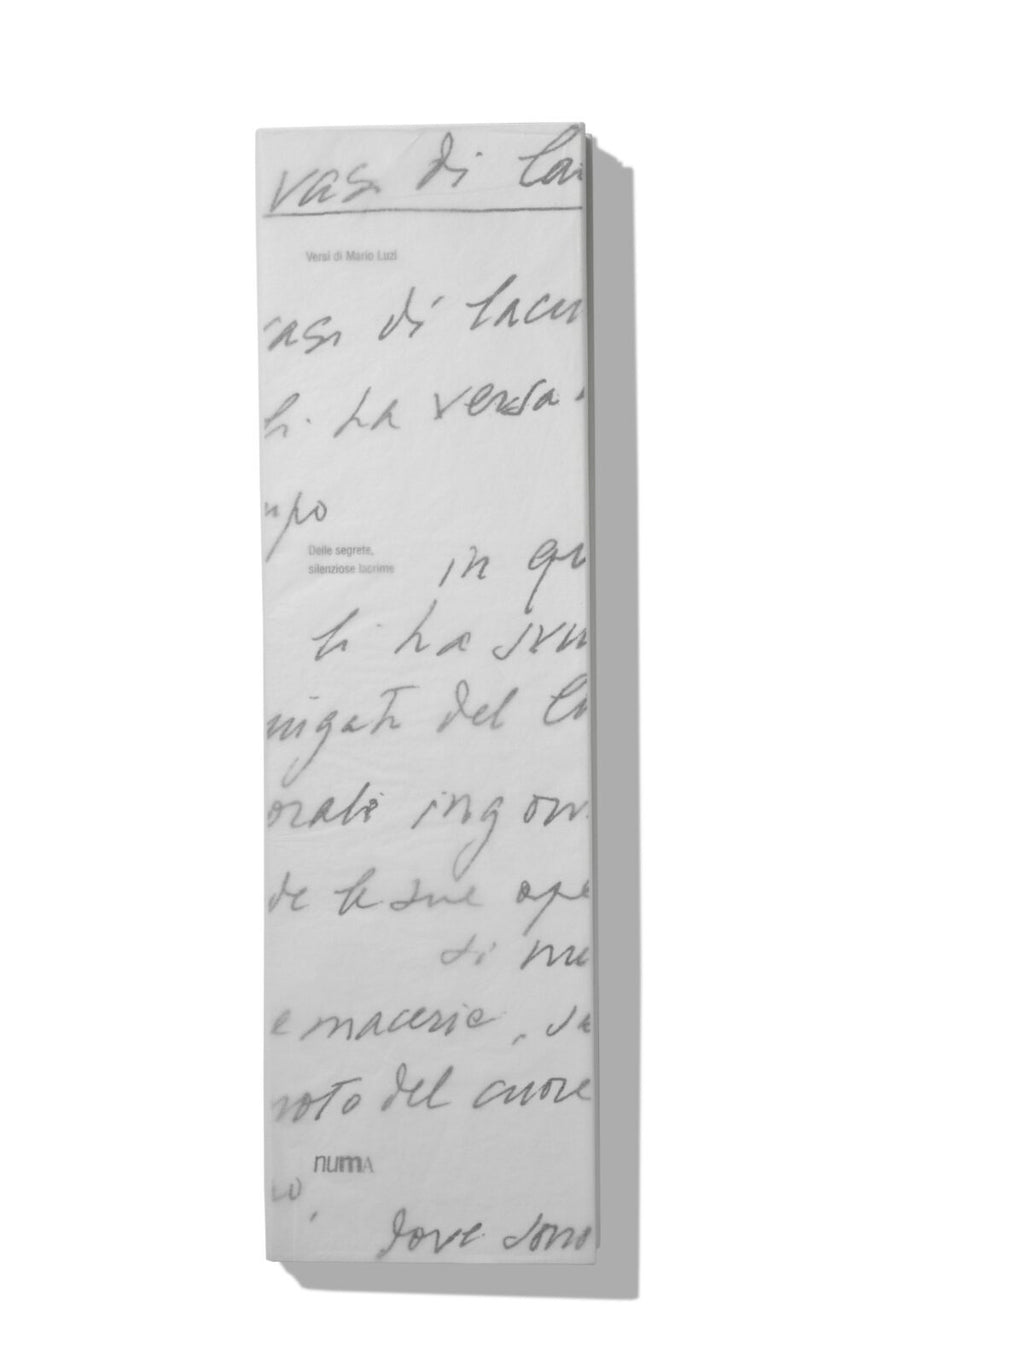 vasi di lac
Versi di Mario Luzi
vasi di lacri
li. La versa
mpo
Delle segrete,
silenziose lacrime
in qu
li ha
nigati del
orali ingom
de le sue ope
si
e macerie, sa
noto del cuore
numA
dove sono